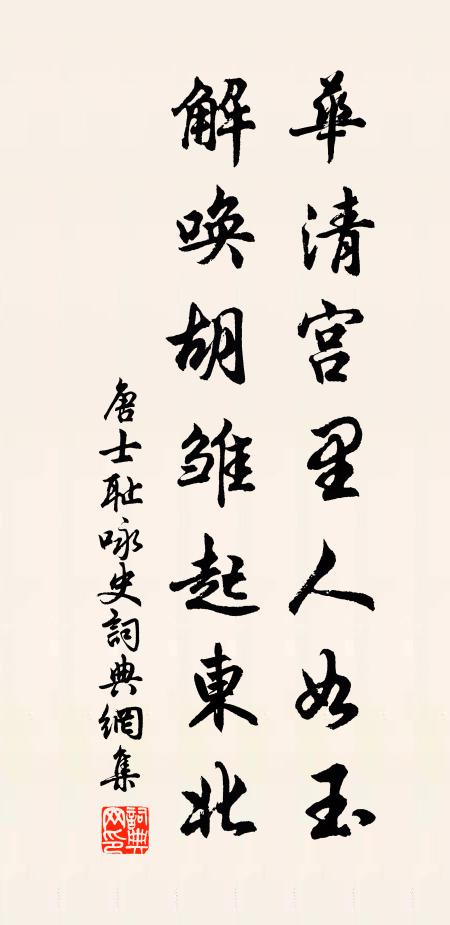 華清宮里人如玉
解喚胡雛起東北
唐士耻咏史詞典網集
詞典网印